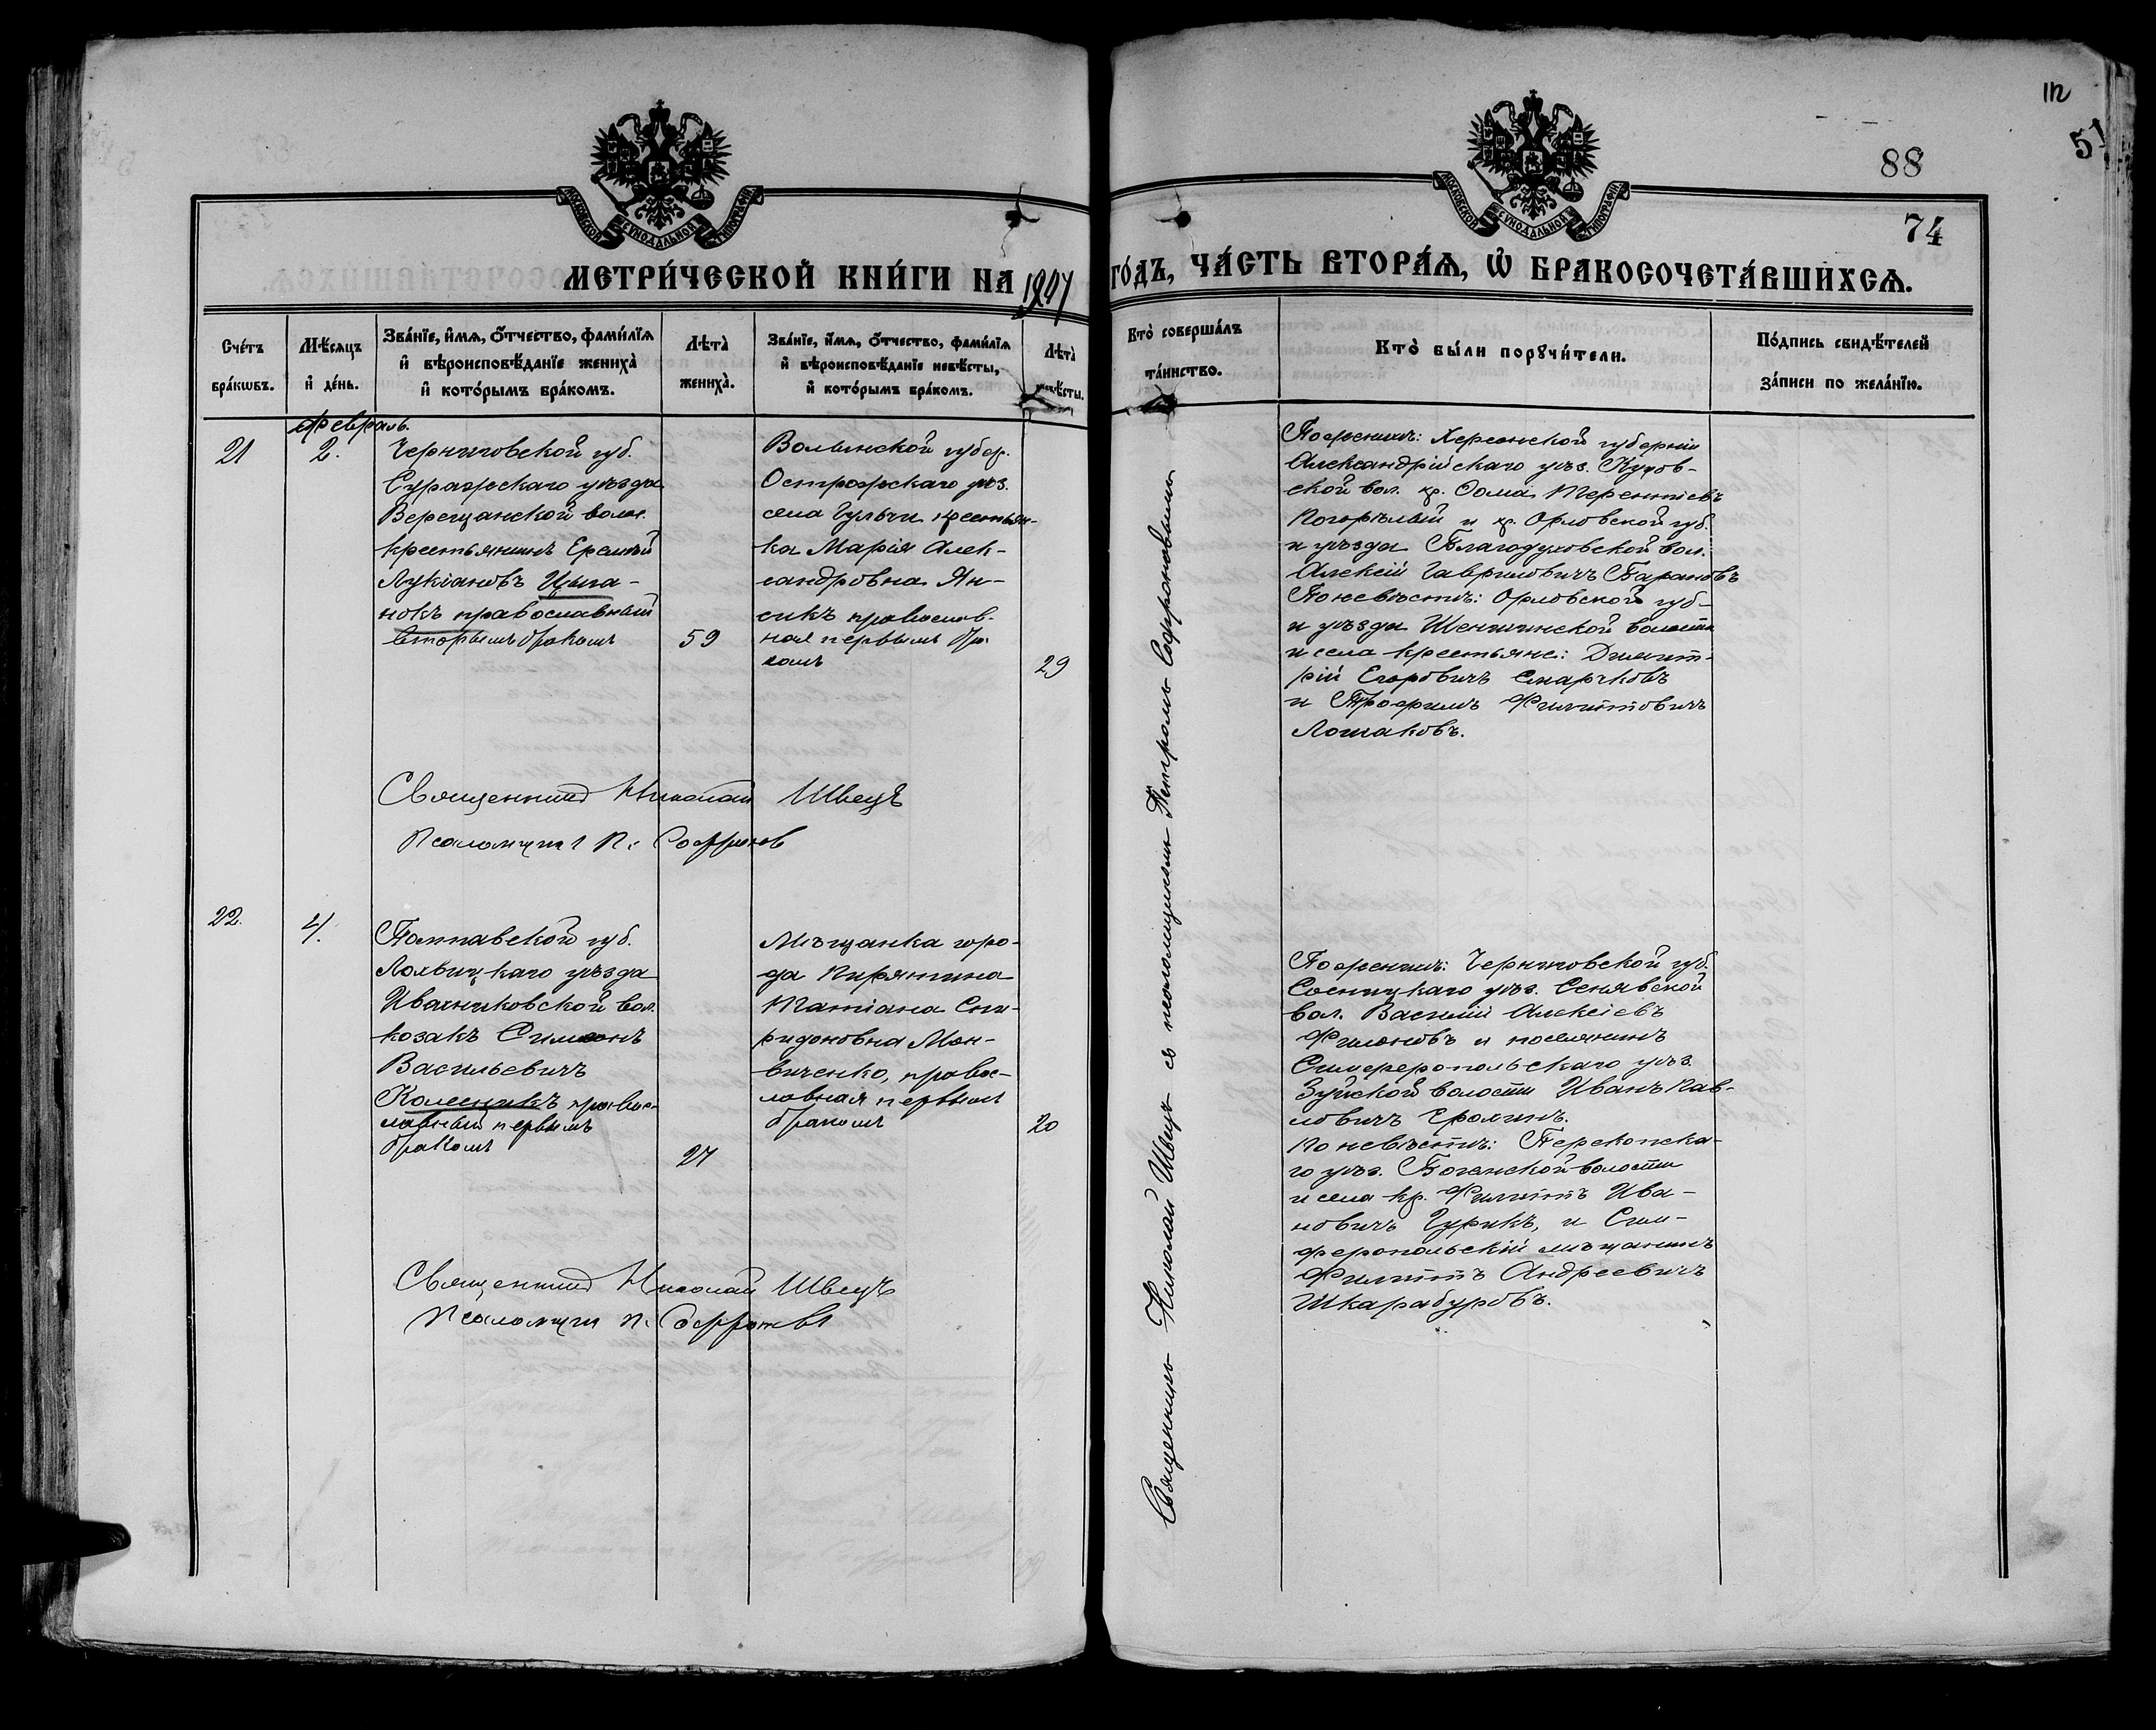 112
51
88
74
МОСКОВСКОЙ СѴНОДАЛЬНОЙ ТИПОГРАФІИ
МОСКОВСКОЙ СѴНОДАЛЬНОЙ ТИПОГРАФІИ
МЕТРИ́ЧЕСКОЙ КНИ́ГИ НА
ГО́ДЪ, ЧА́СТЬ ВТОРА́Ѧ, Ѡ҆ БРАКОСОЧЕТА́ВШИХСѦ.
Сче́тъ бра́кѡвъ.
Мѣ́сѧцъ и҆ де́нь.
Зва́нїе, и҆́мѧ, ѻ҆́тчество, фами́лїѧ и҆ вѣроисповѣ́данїе жениха̀ и҆ кото́рымъ бра́комъ.
Лѣта̀ жениха̀.
Зва́нїе, и҆́мѧ, ѻ҆́тчество, фами́лїѧ и҆ вѣроисповѣ́данїе невѣ́сты, и҆ кото́рымъ бра́комъ.
Лѣта̀ невѣ́сты.
Кто̀ соверша́лъ та́инство.
Кто̀ бы́ли порꙋчи́тели.
По́дпись свидѣ́телей за́писи по жела́нїю.
Февраль.
21
2.
Черниговской губ.
Суражскаго уѣзда
Верещанской волос.
крестьянинъ Еремѣй
Лукіановъ Цыга-
нокъ православный
вторымъ бракомъ
59
Волынской губер.
Острожскаго уѣз.
села Гульчи крестьян-
ка Марія Алек-
сандровна Ян-
сикъ православ-
ная первымъ бра-
комъ
29
По женихѣ: Херсонской губерніи
Александрійскаго уѣз. Куцов-
ской вол. кр. Ѳома Терентіевъ
Погорѣлый и кр. Орловской губ.
и уѣзда Благодуховской вол.
Алексій Гавриловичъ Барановъ
По невѣстѣ: Орловской губ-
и уѣзда Шеншинской волости
и села крестьяне: Димит-
рій Егоровичъ Старчковъ
и Трофимъ Филипповичъ
Лошаковъ.
Священникъ Николай Швецъ
Псаломщик П. Софронов
22.
4.
Полтавской губ.
Лохвицкаго уѣзда
Ивахниковской вол.
козакъ Симеонъ
Васильевичъ
Колесникъ правос-
лавный первымъ
бракомъ
27
Мѣщанка горо-
да Пирятина
Татіана Спи-
ридоновна Мон-
виченко, правос-
лавная первымъ
бракомъ
20
По женихѣ: Черниговской губ.
Сосницкаго уѣз. Сенявской
вол. Василій Алексіевъ
Филоновъ и поселянинъ
Симферопольскаго уѣз.
Зуйской волости Иванъ Пав-
ловичъ Ерохинъ.
По невѣстѣ: Перекопска-
го уѣз. Богемской волости
и села кр. Филиппъ Ива-
новичъ Гурикъ, и Сим-
феропольскій мѣщанинъ
Филиппъ Андреевичъ
Шкарабуровъ.
Священникъ Николай Швецъ
Псаломщик П. Софронов
Священникъ Николай Швецъ съ псаломщикомъ Петромъ Софроновымъ